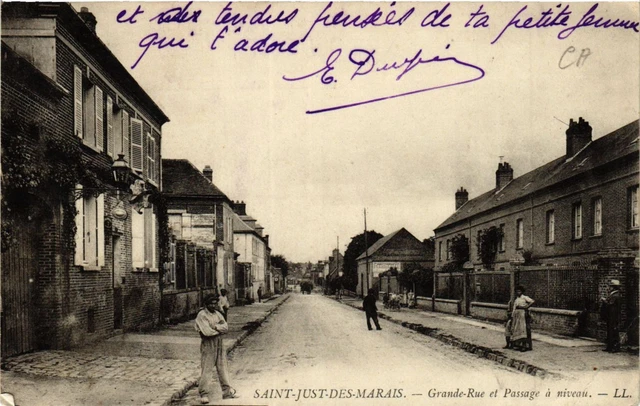 et des tendus pensées de ta petite femme
qui t'adore.
E. Dupin
CA
SAINT-JUST-DES-MARAIS. — Grande-Rue et Passage à niveau. — LL.